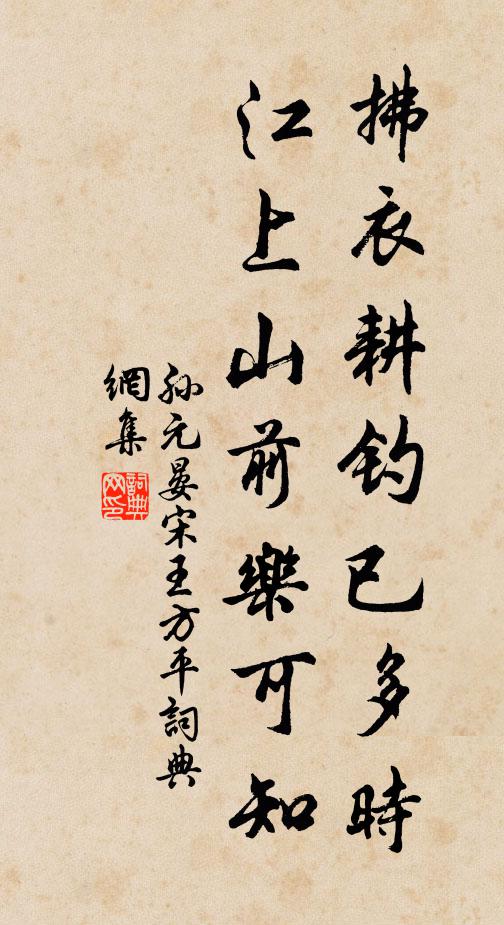 拂衣耕钓已多時
江上山前樂可知
孫元晏宋王方平詞典
網集
詞典
网印